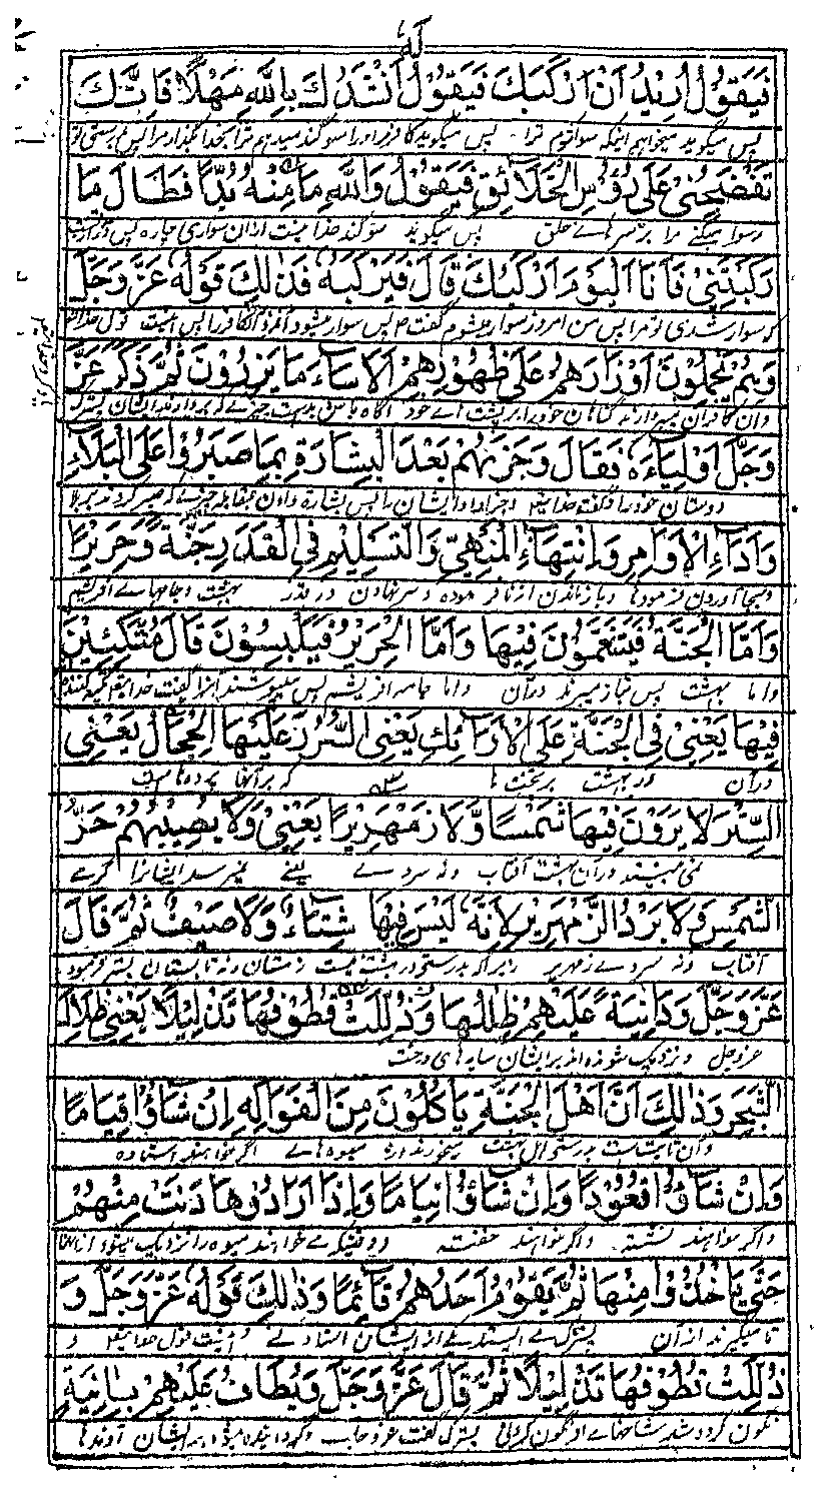 له
فَيَقُوْلُ اُرِيْدُ اَنْ اَرْكَبَكَ فَيَقُوْلُ اَنْشَدْتُكَ بِاللّٰهِ مَهْلًا فَاِنَّكَ
پس میگوید میخواهم اینکه سوار شوم ترا پس میگوید کافر
تَفْضَحُنِيْ عَلٰى رُؤُسِ الْخَلَائِقِ فَيَقُوْلُ وَاللّٰهِ مَا مِنْهُ بُدًّا فَطَالَ مَا
رسوا میکنی مرا بر سرهای خلق پس میگوید سوگند خدا نیست ازان سواری چاره پس
رَكِبْتَنِيْ فَاَنَا الْيَوْمَ اَرْكَبُكَ قَالَ فَيَرْكَبُهُ فَذٰلِكَ قَوْلُهُ عَزَّ وَجَلَّ
که سوار شدی تو مرا پس من امروز سوار میشوم گفت پس سوار میشود
وَهُمْ يَحْمِلُوْنَ اَوْزَارَهُمْ عَلٰى ظُهُوْرِهِمْ اَلَا سَاءَ مَا يَزِرُوْنَ ثُمَّ ذَكَرَ عَزَّ
وان کافران میبردارند گناهان خود را بر پشت های خود آگاه باش
وَجَلَّ اَوْلِيَاءَهُ فَقَالَ وَجَزٰىهُمْ بَعْدَ الْبِشَارَةِ بِمَا صَبَرُوْا عَلَى الْبَلَاءِ
دوستان خود را و گفت خدایتعالی و جزا داد ایشان را پس بشارة دادن
وَاَدَاءِ الْاَوَامِرِ وَانْتِهَاءِ الْمَنْهِيِّ وَالتَّسْلِيْمِ فِي الْقَدَرِ جَنَّةً وَّحَرِيْرًا
وبجا آوردن فرمودها و باز ماندن از نافرموده و سر نهادن در قدر بهشت و جامهای ابریشم
وَاَمَّا الْجَنَّةُ فَيَتَنَعَّمُوْنَ فِيْهَا وَاَمَّا الْحَرِيْرُ فَيَلْبِسُوْنَ قَالَ مُتَّكِئِيْنَ
و اما بهشت پس نیاز میبرند دران و اما جامه ابریشم پس میپوشند آنرا گفت خدایتعالی تکیه کننده
فِيْهَا يَعْنِيْ فِي الْجَنَّةِ عَلَى الْاَرَائِكِ يَعْنِي السُّرُرَ عَلَيْهَا الْحِجَالُ يَعْنِي
دران در بهشت بر تخت ها که بر آنها پرده ها
السِّتْرَ لَا يَرَوْنَ فِيْهَا شَمْسًا وَّلَا زَمْهَرِيْرًا يَعْنِيْ وَلَا يُصِيْبُهُمْ حَرُّ
نمی بینند دران بهشت آفتاب و نه سردی یعنی نمیرسد ایشانرا گرمی
الشَّمْسِ وَلَا بَرْدُ الزَّمْهَرِيْرِ لِاَنَّهُ لَيْسَ فِيْهَا شِتَاءٌ وَّلَا صَيْفٌ ثُمَّ قَالَ
آفتاب و نه سردی زمهریر زیرا که بدرستی در بهشت نیست زمستان و نه تابستان بستر فرمود
عَزَّ وَجَلَّ وَدَانِيَةً عَلَيْهِمْ ظِلٰلُهَا وَذُلِّلَتْ قُطُوْفُهَا تَذْلِيْلًا يَعْنِيْ ظِلَالَ
عزوجل و نزدیک شونده از بر ایشان سایه های درخت
الشَّجَرِ وَذٰلِكَ اَنَّ اَهْلَ الْجَنَّةِ يَاْكُلُوْنَ مِنَ الْفَوَاكِهِ اِنْ شَاؤُا قِيَامًا
بدرستی اهل بهشت میخورند از میوه های اگر خواهند استاده
وَاِنْ شَاؤُا قُعُوْدًا وَاِنْ شَاؤُا نِيَامًا وَاِذَا اَرَادُوْهَا دَنَتْ مِنْهُمْ
و اگر خواهند نشسته و اگر خواهند خفته و وقتیکه خواهند میوه را نزدیک میشود از آنها
حَتّٰى يَاْخُذُوْا مِنْهَا ثُمَّ يَقُوْمُ اَحَدُهُمْ قَائِمًا وَذٰلِكَ قَوْلُهُ عَزَّ وَجَلَّ وَ
تا میگیرند از آن بستر می ایستد یکی از ایشان استاده و اینست قول خدایتعالی و
ذُلِّلَتْ قُطُوْفُهَا تَذْلِيْلًا ثُمَّ قَالَ عَزَّ وَجَلَّ وَيُطَافُ عَلَيْهِمْ بِاٰنِيَةٍ
نگون کرده شد شاخهای او نگون کردنی بستر گفت عزوجل و گردانیده میشود بر ایشان آوندها